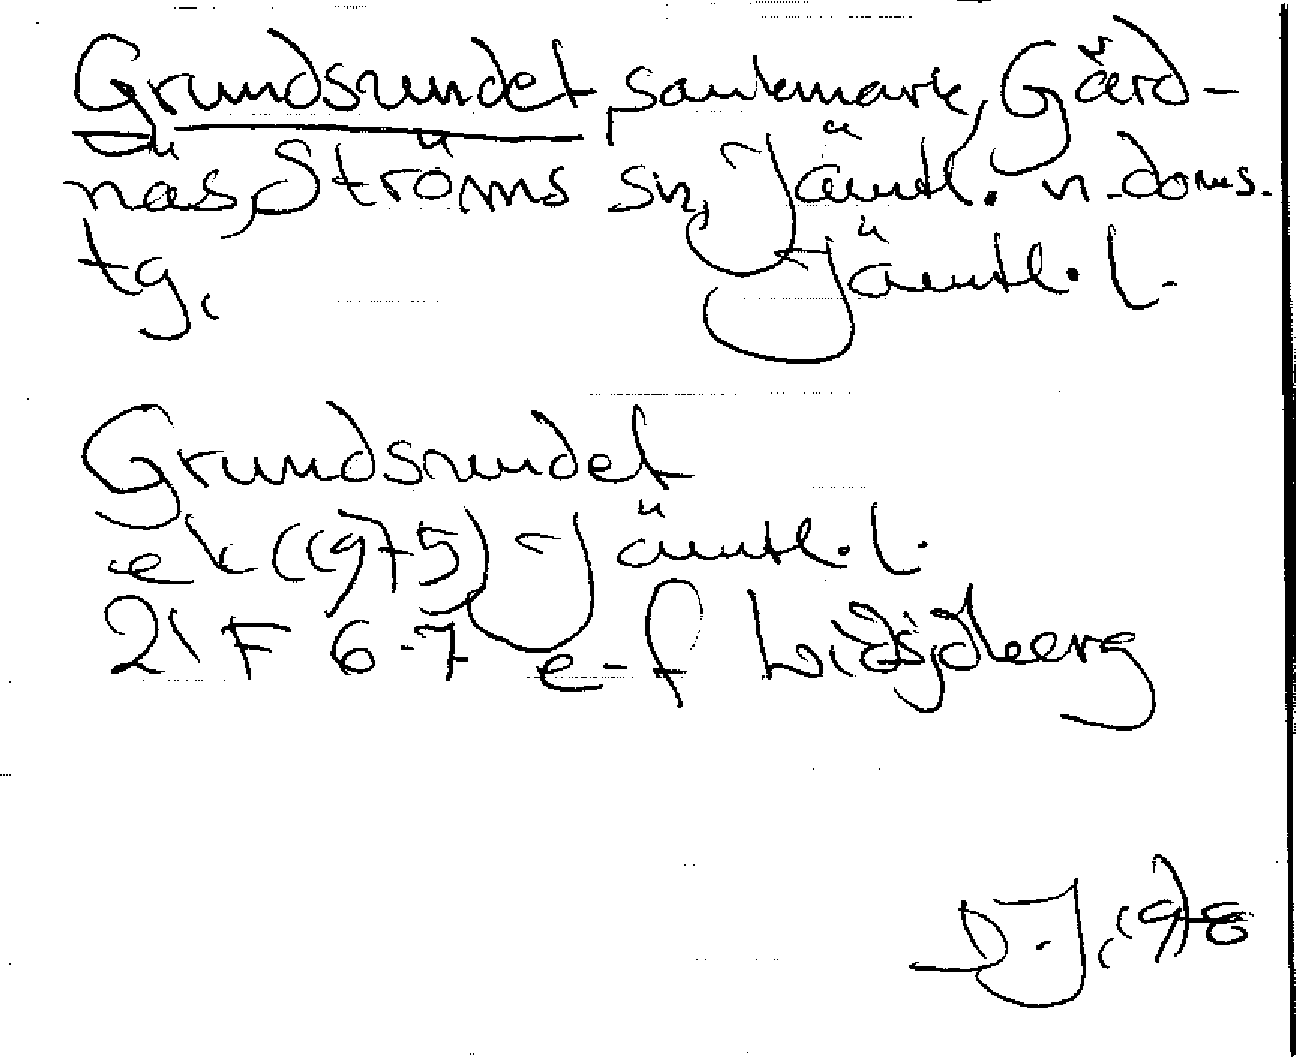 Grundsundet, sankmark, Gärd-
näs, Ströms sn, Jämtl. n. doms.
tg, Jämtl. l.
Grundsundet
ek (1975) Jämtl. l.
21 F 6-7 e-f
D.J. 1978